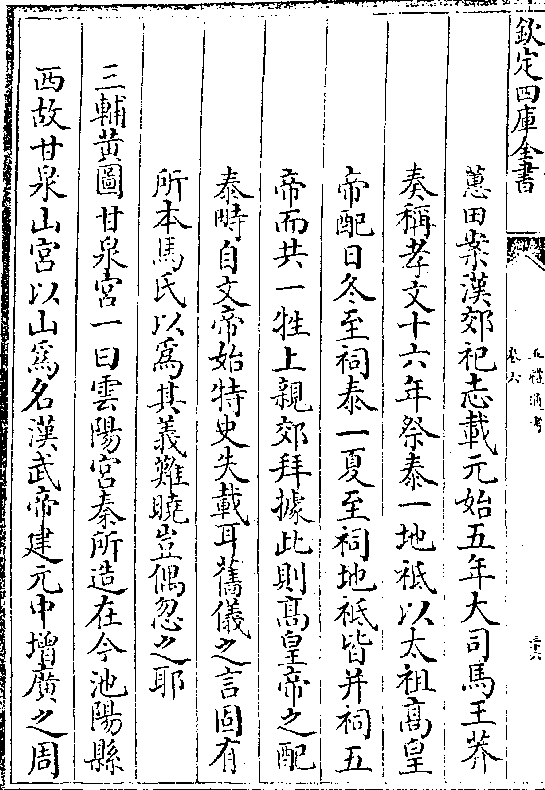 欽定四庫全書
五禮通考
卷六
三六
蕙田案漢郊祀志載元始五年大司馬王莽
奏稱孝文十六年祭泰一地祗以太祖髙皇
帝配日冬至祠泰一夏至祠地祗皆并祠五
帝而共一牲上親郊拜據此則髙皇帝之配
泰畤自文帝始特史失載耳舊儀之言固有
所本馬氏以為其義難曉豈偶忽之耶
三輔黄圖甘泉宫一曰雲陽宫秦所造在今池陽縣
西故甘泉山宫以山為名漢武帝建元中增廣之周